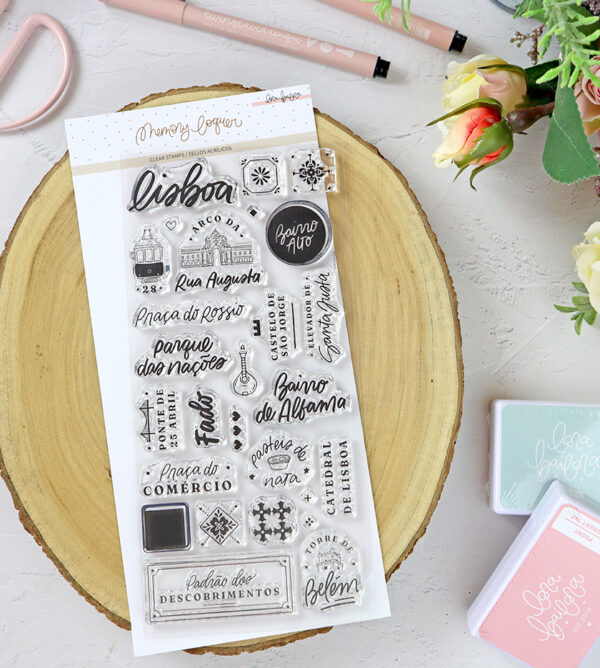 lora bailora
memory loquer
CLEAR STAMPS / SELLOS ACRÍLICOS
lisboa
28
ARCO DA
Rua Augusta
Bairro
Alto
Praça do Rossio
CASTELO DE
SÃO JORGE
ELEVADOR DE
Santa Justa
Parque
das nações
PONTE DE
25 ABRIL
Fado
Bairro
de Alfama
pasteis de
nata
CATEDRAL
DE LISBOA
Praça do
COMÉRCIO
Padrão dos
DESCOBRIMENTOS
TORRE DE
Belém
lora
bailora
lora
bailora